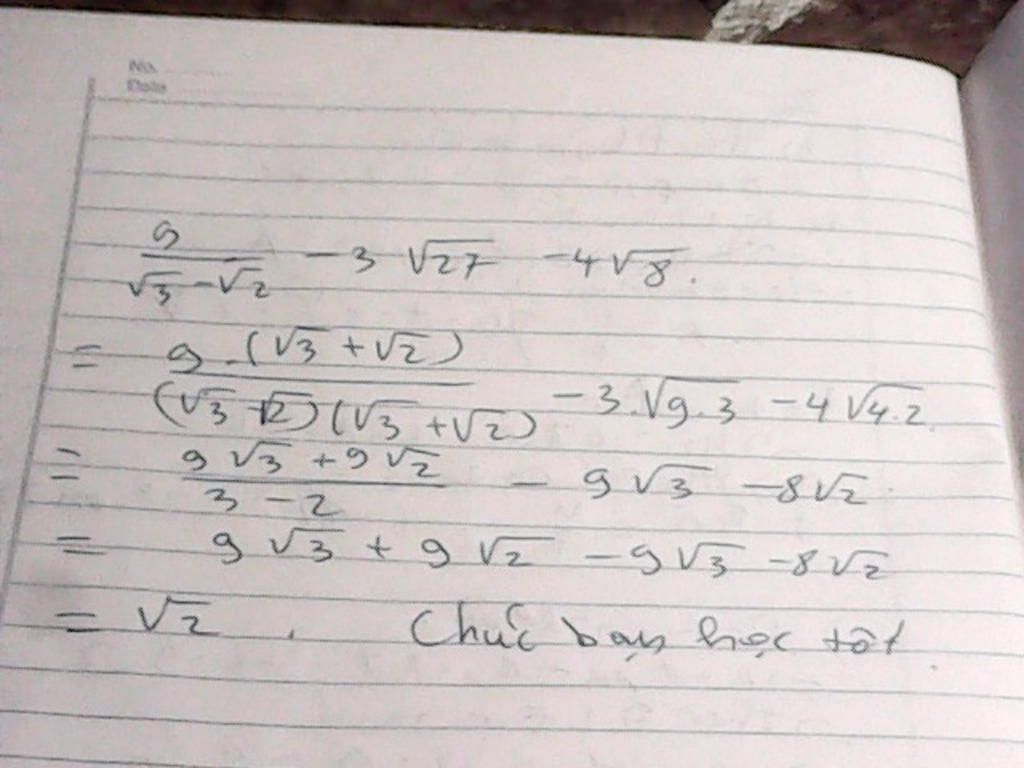 No.
Date
9/(√3 - √2) - 3 √27 - 4√8.
= 9.(√3 + √2)/((√3 - √2)(√3 + √2)) - 3.√9.3 - 4√4.2.
= (9√3 + 9√2)/(3 - 2) - 9√3 - 8√2
= 9√3 + 9√2 - 9√3 - 8√2
= √2. Chúc bạn học tốt.